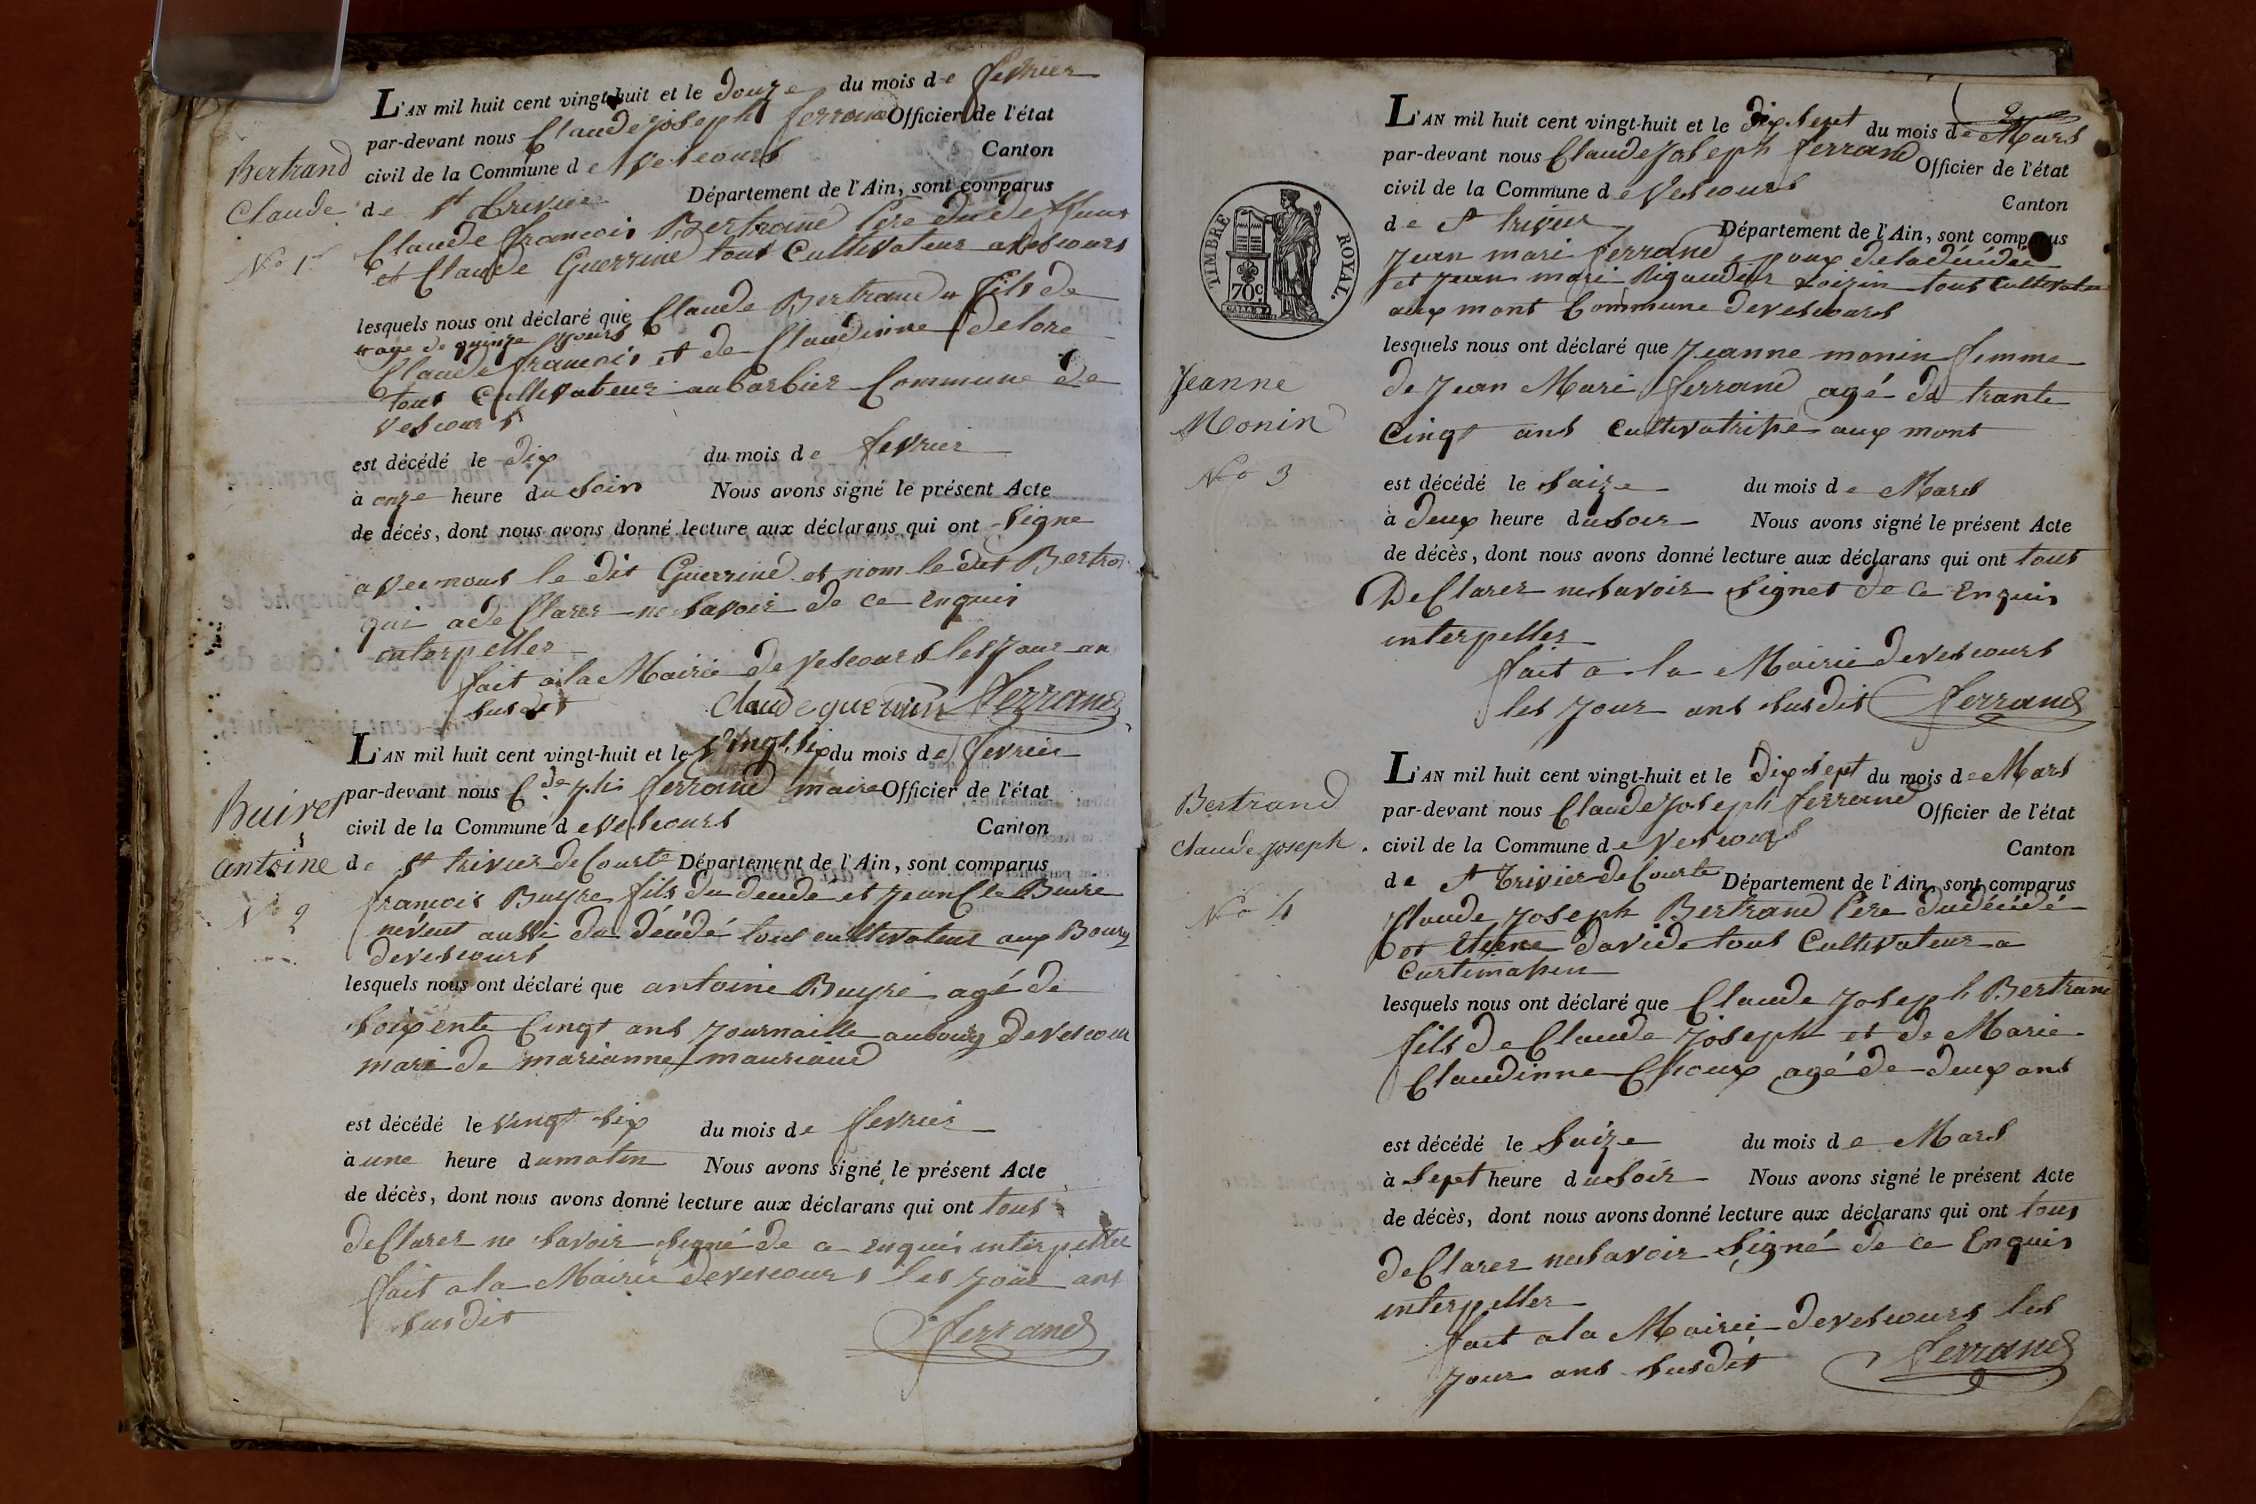 L'AN mil huit cent vingt-huit et le douze du mois de fevrier
par-devant nous Claude joseph ferrand Officier de l'état
civil de la Commune de Vescours Canton
de st trivier Département de l'Ain, sont comparus
Claude francois Bertrand Pere du deffunt
et Claude Guerrind tous Cultivateur a Vescours
lesquels nous ont déclaré que Claude Bertrand fils de
age de quinze jours
Claude francois et de Claudinne delore
tous Cultivateur au barbier Commune de
Vescours
est décédé le dix du mois de fevrier
à onze heure du soir Nous avons signé le présent Acte
de décès, dont nous avons donné lecture aux déclarans qui ont signe
avec nous le dit Guerrind et nom le dit Bertran
qui a de Clarer ne savoir de ce enquis
interpeller
fait a la Mairie de vescours les jour an
susdit Claude guerrin ferrand
Bertrand
Claude
No 1
L'AN mil huit cent vingt-huit et le vingt six du mois de fevrier
par-devant nous Cde jph ferrand maire Officier de l'état
civil de la Commune de Vescours Canton
de st trivier de Courte Département de l'Ain, sont comparus
francois Buyre fils du decede et jean Cle Buire
neveut aussi du décédé tous cultivateur aux Bourg
de vescours
lesquels nous ont déclaré que antoine Buyre agé de
soixente Cinqt ans journaille au bourg de vescour
mari de marianne mauriaud
est décédé le vingt six du mois de fevrier
à une heure du matin Nous avons signé le présent Acte
de décès, dont nous avons donné lecture aux déclarans qui ont tous
de Clarer ne savoir signé de ce enquis interpeller
fait a la Mairie de vescours les jour ans
susdit
ferrand
Buiret
antoine
No 2
2
L'AN mil huit cent vingt-huit et le dix sept du mois de Mars
par-devant nous Claude joseph ferrand Officier de l'état
civil de la Commune de Vescours Canton
de st trivier Département de l'Ain, sont comparus
jean mari ferrand epoux de la décédée
et jean mari Rigaudier voizin tous Cultivateu
aux mont Commune de vescours
lesquels nous ont déclaré que jeanne monin femme
de jean Mari ferrand agé de trante
Cinqt ans Cultivatrise aux mont
est décédé le saize du mois de Mars
à deux heure du soir Nous avons signé le présent Acte
de décès, dont nous avons donné lecture aux déclarans qui ont tous
De Clarer ne savoir signet de ce Enquis
interpeller
fait a la Mairie de vescours
les jour ans susdit ferrand
TIMBRE ROYAL.
70c
Jeanne
Monin
No 3
L'AN mil huit cent vingt-huit et le dix sept du mois de Mars
par-devant nous Claude joseph ferrand Officier de l'état
civil de la Commune de Vescours Canton
de st trivier de Courte Département de l'Ain, sont comparus
Claude joseph Bertrand Pere du décédé
et davide tous Cultivateur a
Curtimassen
lesquels nous ont déclaré que Claude joseph Bertrand
fils de Claude joseph et de Marie
Claudinne agé de deux ans
est décédé le saize du mois de Mars
à sept heure du soir Nous avons signé le présent Acte
de décès, dont nous avons donné lecture aux déclarans qui ont tous
de Clarer ne savoir signé de ce Enquis
interpeller
fait a la Mairie de vescours les
jour ans susdit ferrand
Bertrand
Claude joseph
No 4